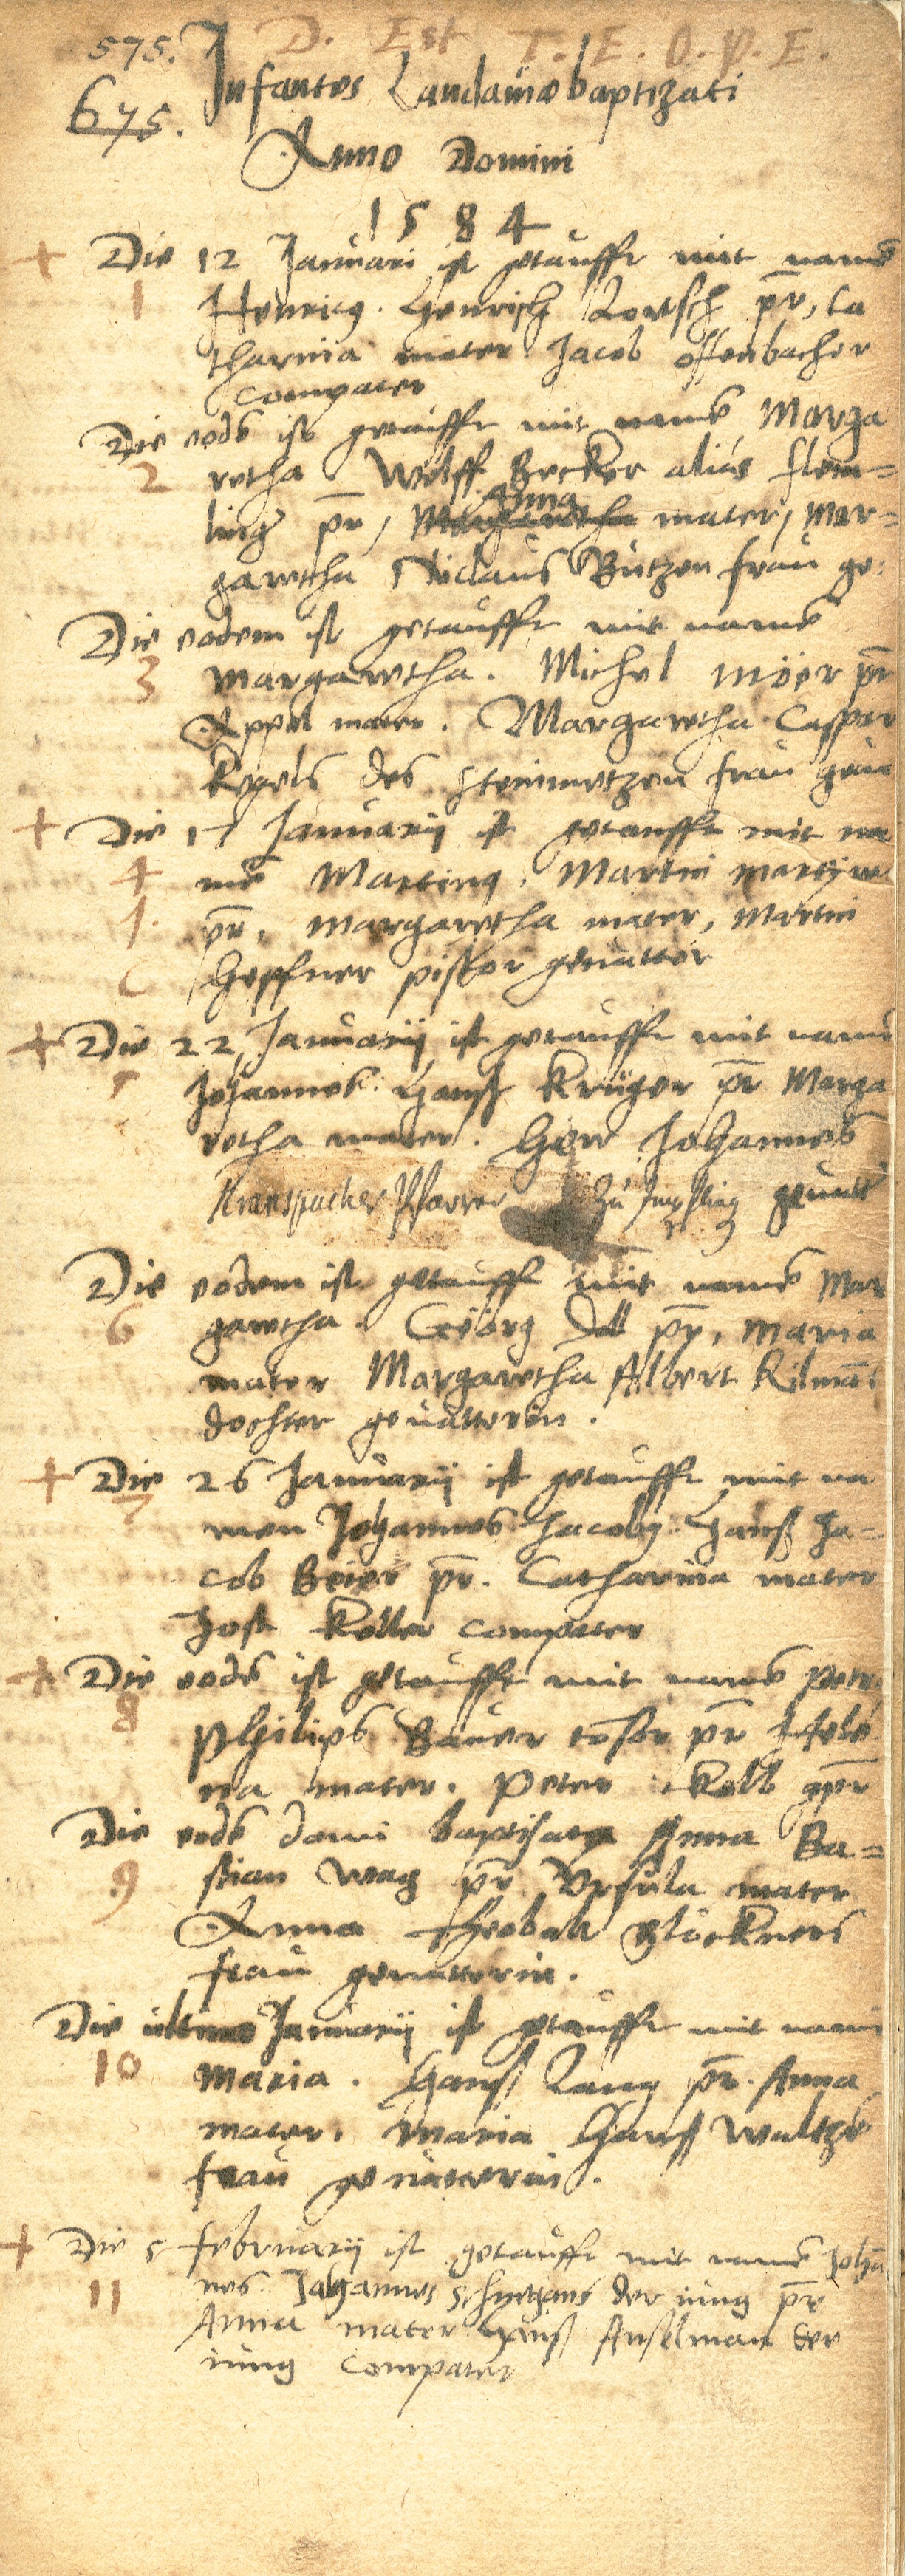 D. Est T. E. O. P. E.
575.
Infantes Landauiæ baptizati
675.
Anno Domini
1584
+ Die 12 Januari ist getaufft mit namē
1 Henricq. Henrich Lortsch pr̄, Ca
tharina mater Jacob Offenbacher
compater
Die eodē ist getaufft mit namē Marga
2 retha Wolff Becker alias Flem=
ling pr̄, Anna mater, Mar=
garetha Niclaus Butzen frau ge:
Die eodem ist getaufft mit namē
3 Margaretha. Michel Möer pr̄
Appel mater. Margaretha Caspar
Kegels des steinmetzen frau geu
+ Die 17 Januarij ist getaufft mit na
4 mē Martinq. Martin
1. pr̄, Margaretha mater, Martin
Heffner pistor geuatter
+ Die 22 Januarij ist getaufft mit namē
5 Johannes. Hanß Krüger pr̄ Marga
retha mater. Herr Johannes
Kranspacher Pfarrer zu Impfling geuatt
Die eodem ist getaufft mit namē Mar
6 garetha. Georg Doll pr̄, Maria
mater Margaretha Albert Kilmās
dochter geuatterin.
+ Die 26 Januarij ist getaufft mit na
7 men Johannes Jacobq. Hanß Ja=
cob Beier pr̄. Catharina mater
Jost Keller compater
+ Die eodē ist getaufft mit namē Petr
8 Philips Bauer pr̄ Hele
na mater. Peter Kolb gpr̄
Die eodē domi baptisata Anna Ba=
9 stian Wag pr̄ Vrsula mater
Anna Theobalt Glöckners
frau geuatterin.
Die ultimo Januarij ist getaufft mit namē
10 Maria. Hanß Lang pr̄. Anna
mater. Maria Hanß Waltzē
frau geuatterin.
+ Die 5 februarij ist getaufft mit namē Johā
11 nes Johannes Schnethans der iung pr̄
Anna mater Hanß Anßelman der
iung compater